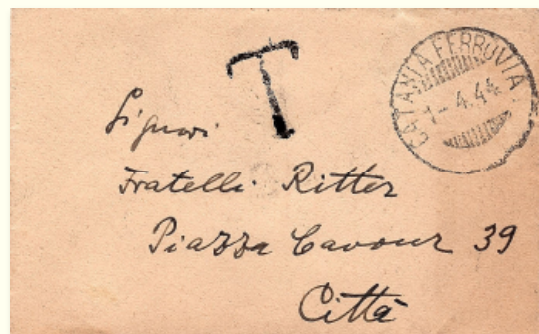 T
CATANIA FERROVIA
1-4.44
Signori
Fratelli Ritter
Piazza Cavour 39
Città